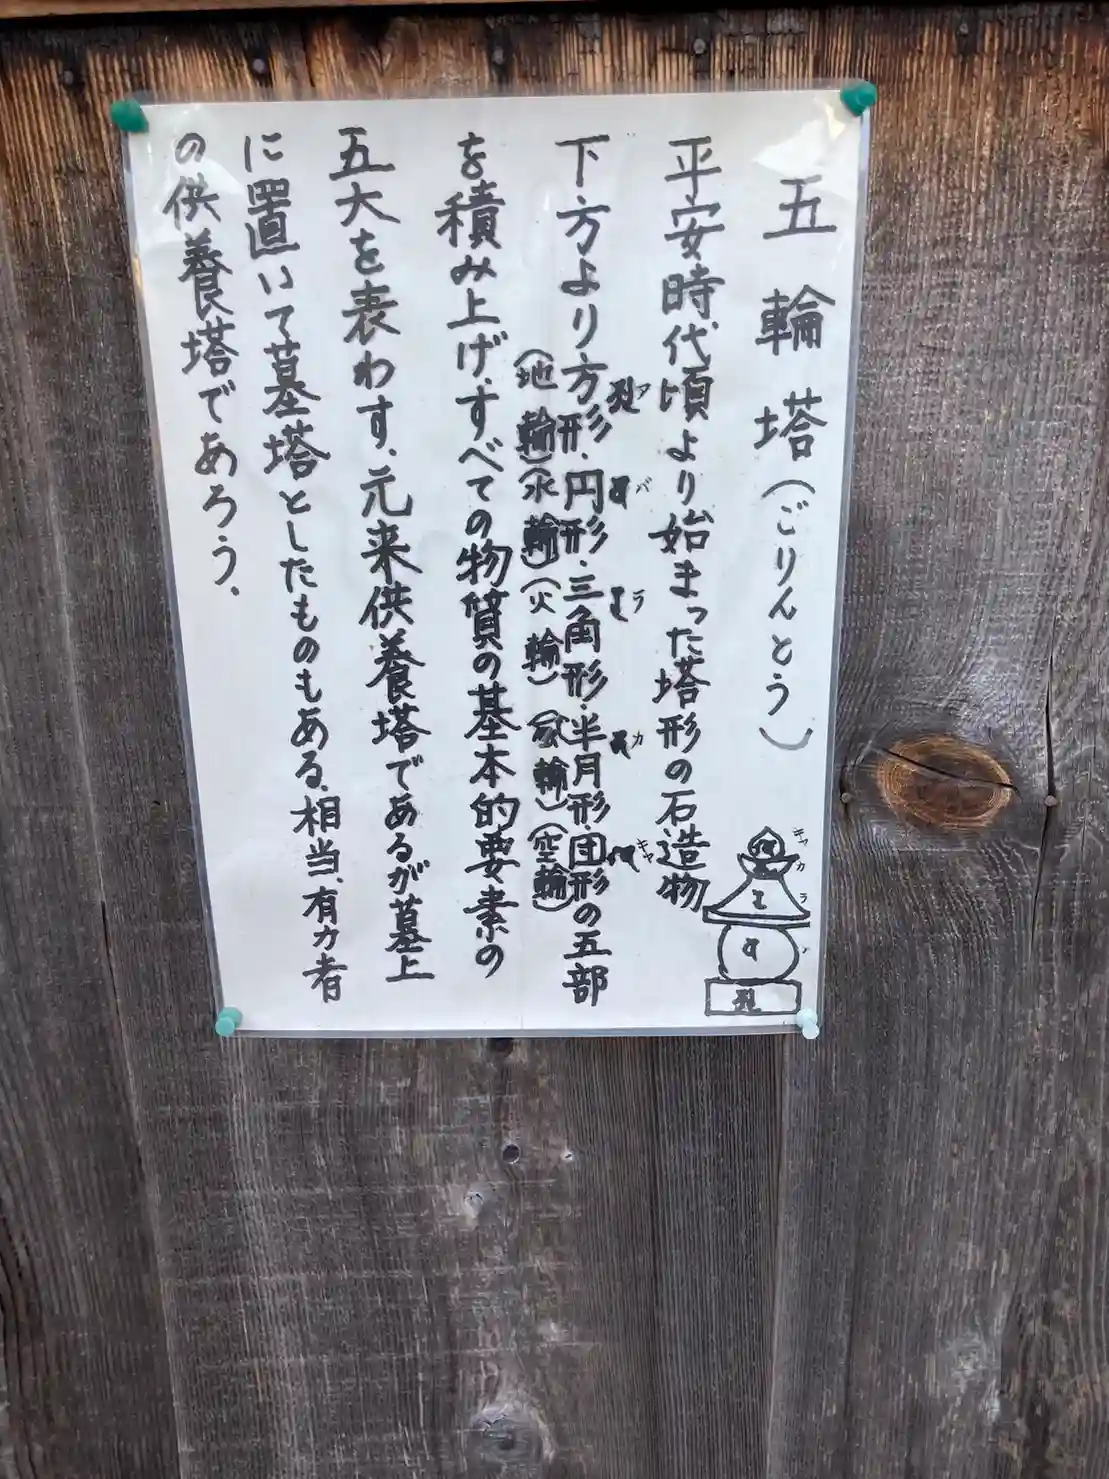 五輪塔(ごりんとう)
平安時代頃より始まった塔形の石造物
ア バ ラ カ キャ
下方より方形・円形・三角形・半月形・団形の五部
(地輪)(水輪)(火輪)(風輪)(空輪)
を積み上げ、すべての物質の基本的要素の
五大を表わす、元来供養塔であるが墓上
に置いて墓塔としたものもある、相当、有力者
の供養塔であろう、
キャ
カ
ラ